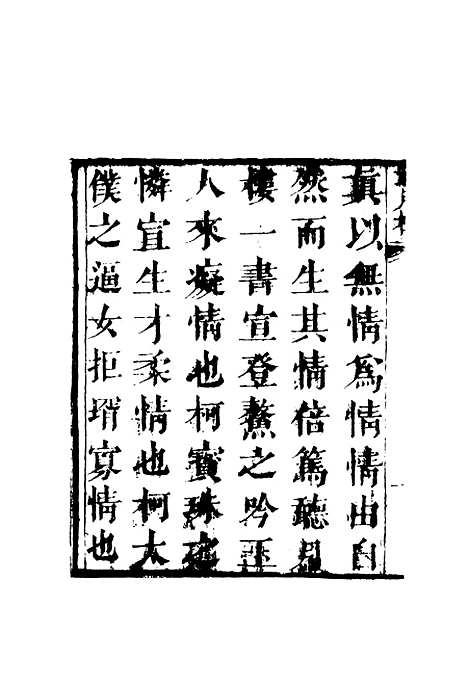 真以無情為情情由自
然而生其情倍篤聽月
樓一書宣登鰲之吟玉
人來癡情也柯寶珠
憐宣生才柔情也柯太
僕之逼女拒壻寡情也